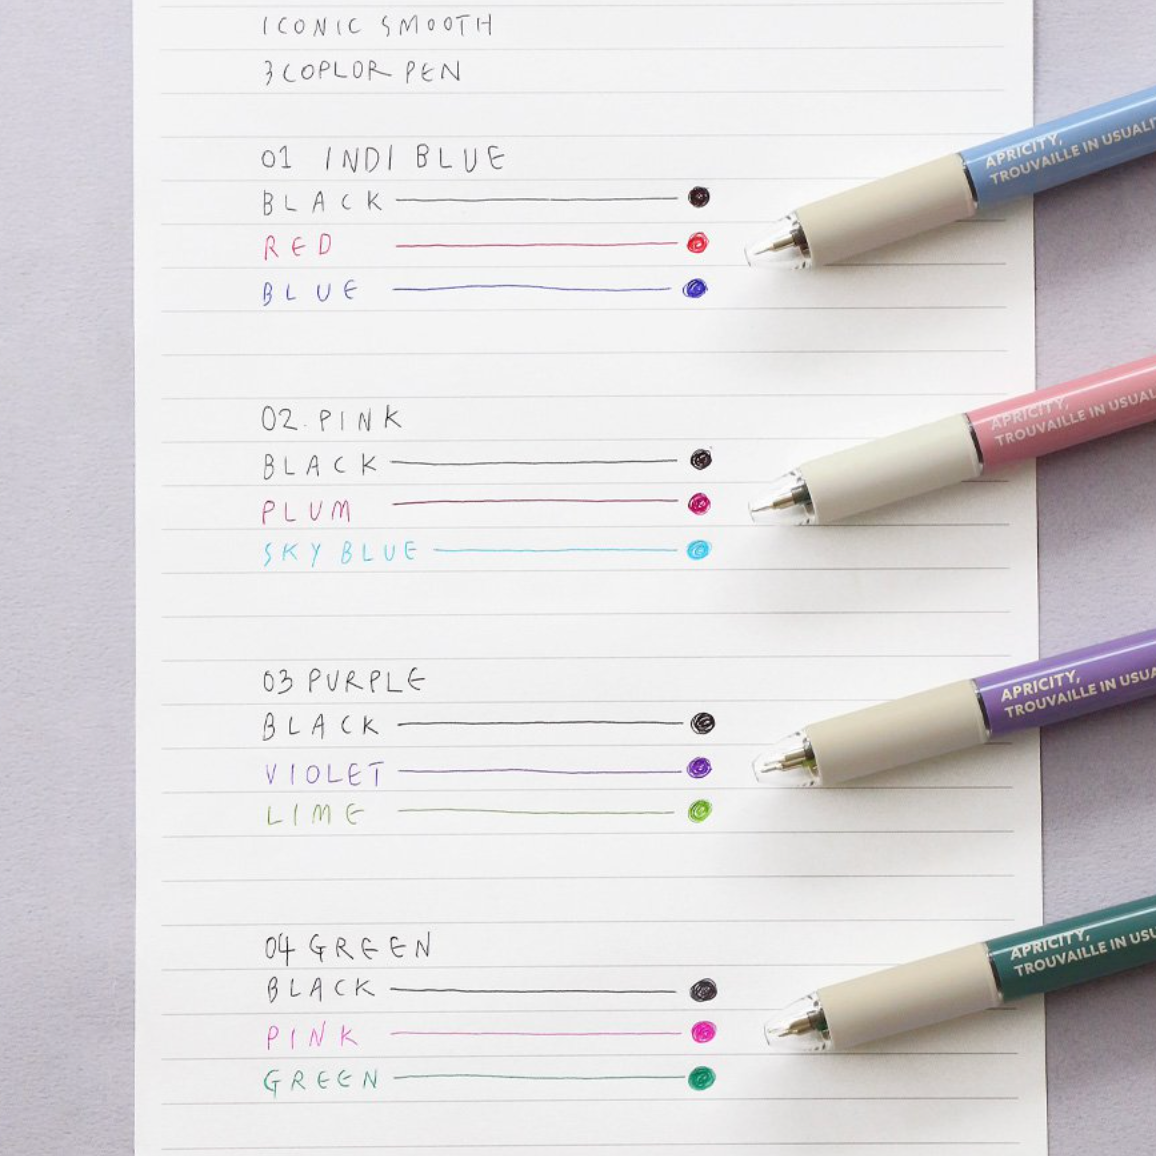 ICONIC SMOOTH
3 COPLOR PEN
01 INDI BLUE
BLACK
RED
BLUE
APRICITY,
TROUVAILLE IN USUALI
02. PINK
BLACK
PLUM
SKY BLUE
APRICITY,
TROUVAILLE IN USUAL
03 PURPLE
BLACK
VIOLET
LIME
APRICITY,
TROUVAILLE IN USUA
04 GREEN
BLACK
PINK
GREEN
APRICITY,
TROUVAILLE IN USU